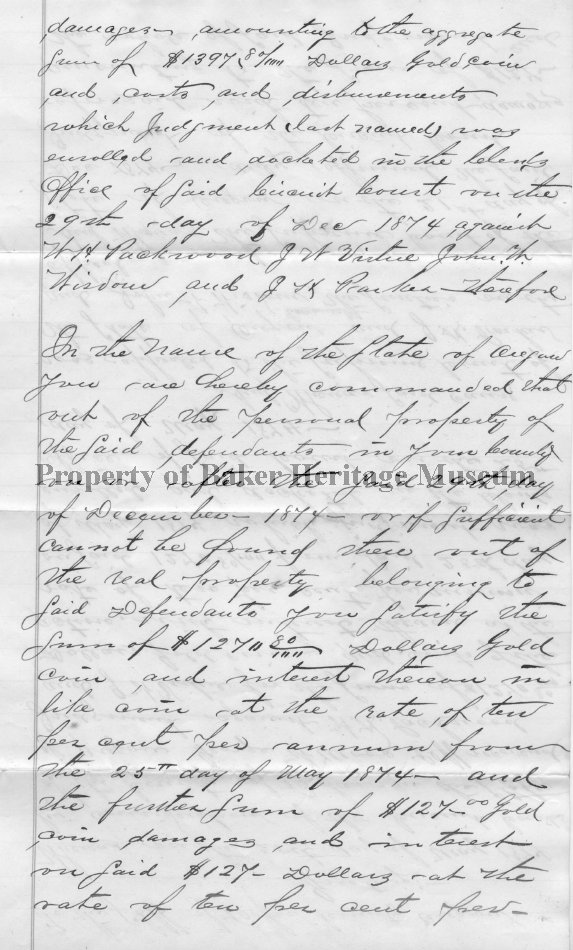 damages amounting to the aggregate
Sum of $1397 80/100 Dollars Gold coin
and costs and disbursements
which Judgment (last named) was
enrolled and docketed in the Clerks
Office of Said Circuit Court on the
29th day of Dec 1874 against
W H Packwood J W Virtue John W.
Wisdom and J H Parker Therefore
In the Name of the State of Oregon
You are hereby commanded that
out of the personal property of
the Said defendants in your County
on or after the Said 29th day
Property of Baker Heritage Museum
of December 1874 or if Sufficient
cannot be found then out of
the real property belonging to
Said Defendants You Satisfy the
Sum of Dollars Gold
coin and interest thereon in
like coin at the rate of ten
per cent per annum from
the 25th day of May 1874 and
the further Sum of $127 00 Gold
coin damages and interest
on Said $127 Dollars at the
rate of ten per cent per